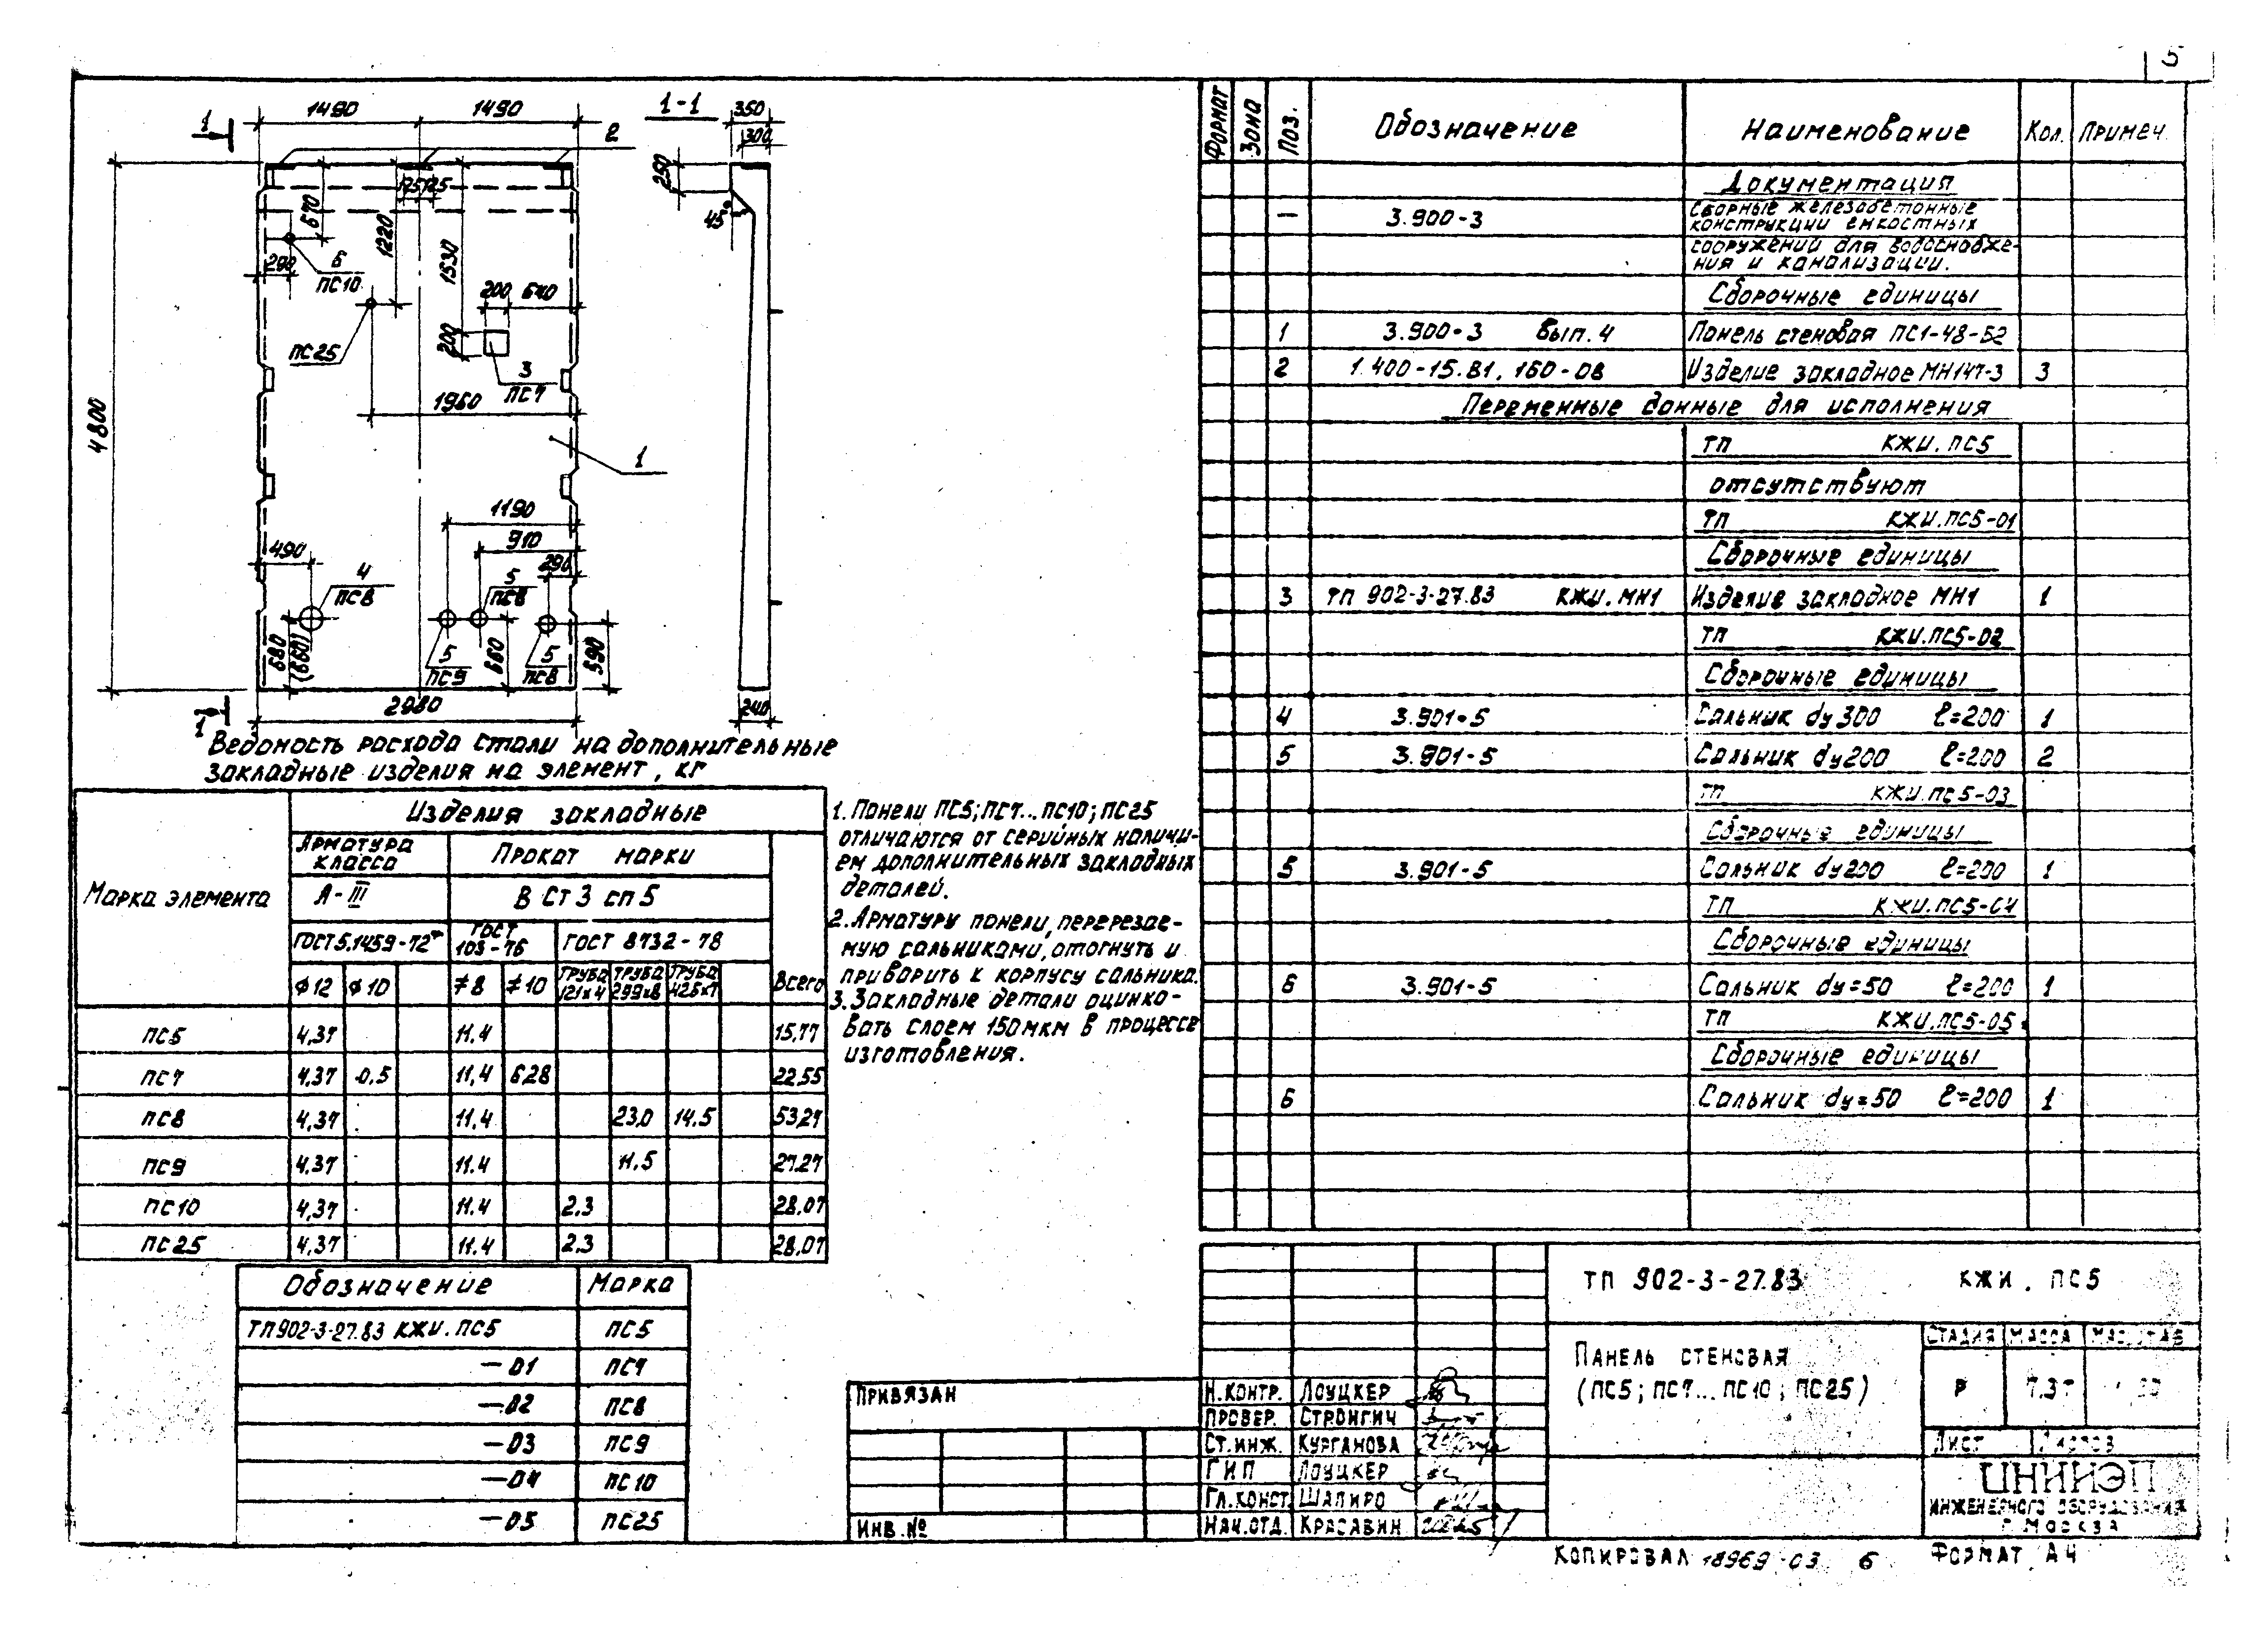 5
1490 1490
1-1
350
300
1
2
250
45°
125 125
670
1220
1530
290
6
ПС10
200 640
200
ПС25
3
ПС7
1960
4800
1
1190
910
290
490
4
ПС8
5
ПС8
680
(660)
5
ПС9
660
5
ПС8
590
2980
240
1
Ведомость расхода стали на дополнительные
закладные изделия на элемент, кг
Марка элемента
Изделия закладные
Арматура
класса
Прокат марки
А-III
В Ст 3 сп 5
ГОСТ 5.1459-72*
ГОСТ
103-76
ГОСТ 8732-78
Всего
ф12 ф10 ≠8 ≠10 Труба 121х4 Труба 299х8 Труба 426х7
ПС5 4,37 11.4 15,77
ПС7 4,37 0,5 11,4 6,28 22,55
ПС8 4,37 11.4 23,0 14,5 53,27
ПС9 4,37 11.4 11.5 27.27
ПС10 4,37 11.4 2.3 28,07
ПС25 4,37 11.4 2,3 28,07
1. Панели ПС5; ПС7... ПС10; ПС25
отличаются от серийных наличи-
ем дополнительных закладных
деталей.
2. Арматуру панели, перерезае-
мую сальниками, отогнуть и
приварить к корпусу сальника.
3. Закладные детали оцинко-
вать слоем 150мкм в процессе
изготовления.
Обозначение Марка
ТП902-3-27.83 КЖИ.ПС5 ПС5
-01 ПС7
-02 ПС8
-03 ПС9
-04 ПС10
-05 ПС25
Формат Зона Поз. Обозначение Наименование Кол. Примеч.
Документация
— 3.900-3 Сборные железобетонные
конструкции емкостных
сооружений для водоснабже-
ния и канализации.
Сборочные единицы
1 3.900-3 Вып.4 Панель стеновая ПС1-48-Б2
2 1.400-15.В1.160-08 Изделие закладное МН147-3 3
Переменные данные для исполнения
ТП КЖИ.ПС5
отсутствуют
ТП КЖИ.ПС5-01
Сборочные единицы
3 ТП 902-3-27.83 КЖИ.МН1 Изделие закладное МН1 1
ТП КЖИ.ПС5-02
Сборочные единицы
4 3.901-5 Сальник dу300 ℓ=200 1
5 3.901-5 Сальник dу200 ℓ=200 2
ТП КЖИ.ПС5-03
Сборочные единицы
5 3.901-5 Сальник dу200 ℓ=200 1
ТП КЖИ.ПС5-04
Сборочные единицы
6 3.901-5 Сальник dу=50 ℓ=200 1
ТП КЖИ.ПС5-05
Сборочные единицы
6 Сальник dу=50 ℓ=200 1
ТП 902-3-27.83 КЖИ. ПС5
Панель стеновая
(ПС5; ПС7... ПС10; ПС25)
Стадия Масса Масштаб
Р 7.3т
Лист Листов
ЦНИИЭП
инженерного оборудования
г. Москва
Привязан
Инв. №
Н.контр. Лоуцкер
Провер. Стронгич
Ст.инж. Курганова
ГИП Лоуцкер
Гл.конст. Шапиро
Нач.отд. Красавин
Копировал 18969-03 6 Формат А4